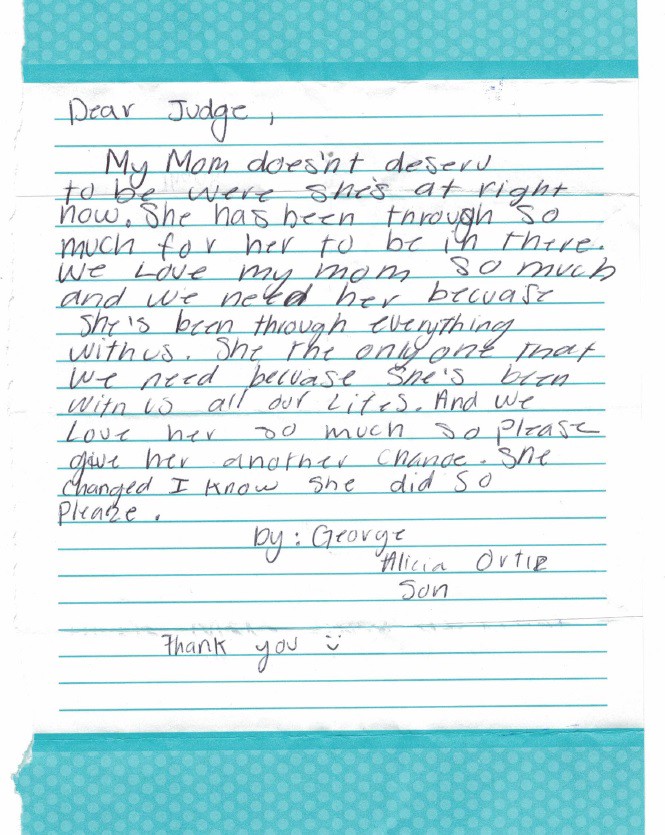 Dear Judge,
My Mom does'nt deserv
to be were she's at right
now. She has been through so
much for her to be in there.
We Love my mom so much
and we need her becuase
she's been through everything
with us. She the only one that
we need becuase she's been
with us all our Lifes. And we
Love her so much so please
give her another chance. She
changed I know she did so
please.
by: George
Alicia Ortiz
Son
Thank you